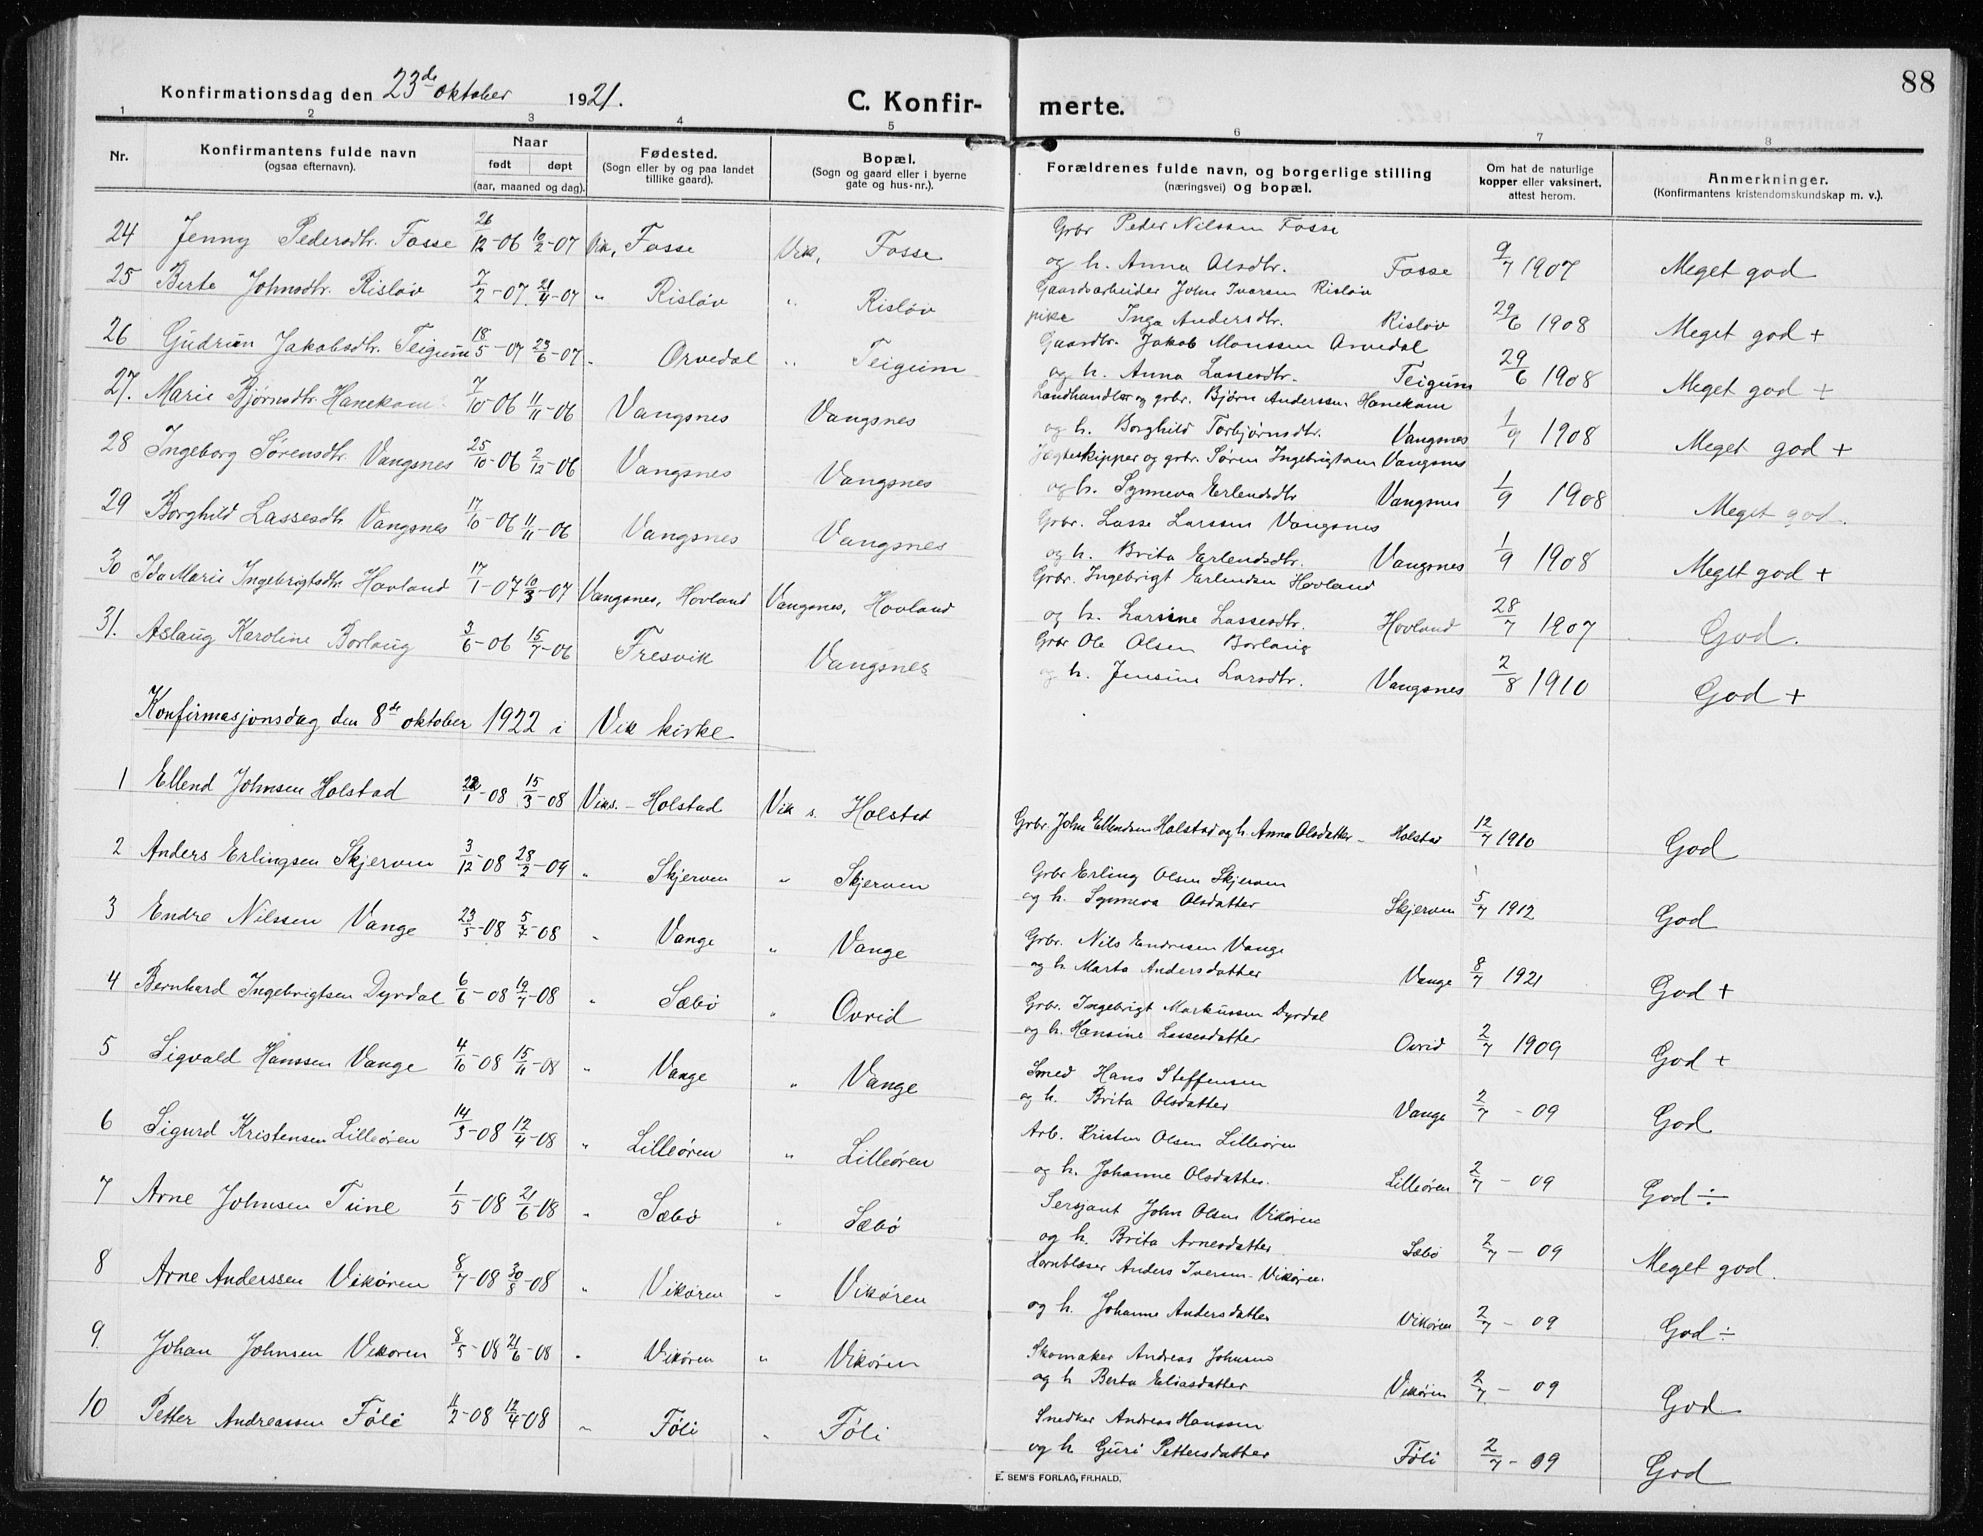 88
Konfirmationsdag den 23de oktober 1921.
C. Konfirmerte.
1 2 3 4 5 6 7 8
Nr. Konfirmantens fulde navn (ogsaa efternavn). Naar født døpt (aar, maaned og dag). Fødested. (Sogn eller by og paa landet tillike gaard). Bopæl. (Sogn og gaard eller i byerne gate og hus-nr.). Forældrenes fulde navn, og borgerlige stilling (næringsvei) og bopæl. Om hat de naturlige kopper eller vaksinert, attest herom. Anmerkninger. (Konfirmantens kristendomskundskap m. v.).
24 Jenny Pedersdtr. Fosse 26/12-06 10/2-07 Vik, Fosse Vik, Fosse Grbr Peder Nilssen Fosse
og h. Anna Olsdtr. Fosse 9/7 1907 Meget god
25 Berte Johnsdtr. Risløv 7/2-07. 21/4-07 " Risløv " Risløv Gaardsarbeider John Ivarsen Risløv
pike Inga Andersdtr. Risløv 29/6 1908 Meget god +
26 Gudrun Jakobsdtr. Teigum 18/5-07 23/6-07 " Orvedal " Teigum Gaardbr. Jakob Monssen Orvedal
og h. Anna Lassesdtr. Teigum 29/6 1908 Meget god +
27. Marie Bjørnsdtr. Hanekam 7/10-06 11/11-06 Vangsnes Vangsnes Landhandler og grbr. Bjørn Anderssen Hanekam
og h. Borghild Torbjørnsdtr. Vangsnes 1/9 1908 Meget god +
28 Ingeborg Sørensdtr. Vangsnes 25/10-06 2/12-06 Vangsnes Vangsnes Jægteskipper og grbr. Søren Ingebrigtsen Vangsnes
og h. Synneva Erlendsdtr Vangsnes 1/9 1908 Meget god.
29 Borghild Lassesdtr. Vangsnes 17/10-06 11/11-06 Vangsnes Vangsnes Grbr. Lasse Larssen Vangsnes
og h. Brita Erlendsdtr. Vangsnes 1/9 1908 Meget god +
30 Ida Marie Ingebrigtsdtr. Hovland 17/1-07 10/3-07 Vangsnes, Hovland Vangsnes, Hovland Grbr. Ingebrigt Erlendsen Hovland
og h. Larsine Lassesdtr. Hovland 28/7 1907 God.
31. Aslaug Karoline Borlaug 3/6-06 15/7-06 Fresvik Vangsnes Grbr Ole Olsen Borlaug
og h. Jensine Larsdtr. Vangsnes 2/8 1910 God +
Konfirmasjonsdag den 8de oktober 1922 i Vik kirke
1 Ellend Johnsen Holstad 22/1-08 15/3-08 Viks. - Holstad Vik s. Holstad Grbr. John Ellendsen Holstad og h. Anna Olsdatter - Holstad 12/7 1910 God
2 Anders Erlingsen Skjerven 3/12-08 28/2-09 " Skjerven " Skjerven Grbr Erling Olsen Skjerven
og h. Synneva Olsdatter Skjerven 5/7 1912 God
3 Endre Nilssen Vange 23/5-08 5/7-08 " Vange " Vange Grbr. Nils Endresen Vange
og h Marta Andersdatter Vange 8/7 1921 God +
4 Bernhard Ingebrigtsen Dyrdal 6/6-08 19/7-08 " Sæbø " Ovrid Grbr. Ingebrigt Markussen Dyrdal
og h. Hansine Lassesdatter Ovrid 2/7 1909 God +
5 Sigvald Hanssen Vange 4/10-08 15/11-08 " Vange " Vange Smed Hans Steffensen
og h. Brita Olsdatter Vange 2/7 - 09 God
6 Sigurd Kristensen Lilleøren 14/3-08 12/4-08 " Lilleøren " Lilleøren Arb. Kristen Olsen Lilleøren
og h. Johanne Olsdatter. Lilleøren 2/7 - 09 God ÷
7 Arne Johnsen Tune 1/5-08 21/6-08 " Sæbø " Sæbø Sersjant John Olsen Vikøren
og h. Brita Arnesdatter Sæbø 2/7 - 09 Meget god.
8 Arne Anderssen Vikøren 8/7-08 30/8-08 " Vikøren " Vikøren Hornblæser Anders Iversen - Vikøren.
og h. Johanne Andersdatter Vikøren 2/7 - 09 God ÷
9. Johan Johnsen Vikøren 8/5-08 21/6-08 " Vikøren " Vikøren Skomaker Andreas Johnsen
og h Berta Eliasdatter Vikøren 2/7 - 09 God
10 Petter Andreassen Føli 11/2-08 12/4-08 " Føli " Føli Snedker Andreas Hanssen
og h Guri Pettersdatter Føli 2/7 - 09 God
E. SEM'S FORLAG, FR.HALD.